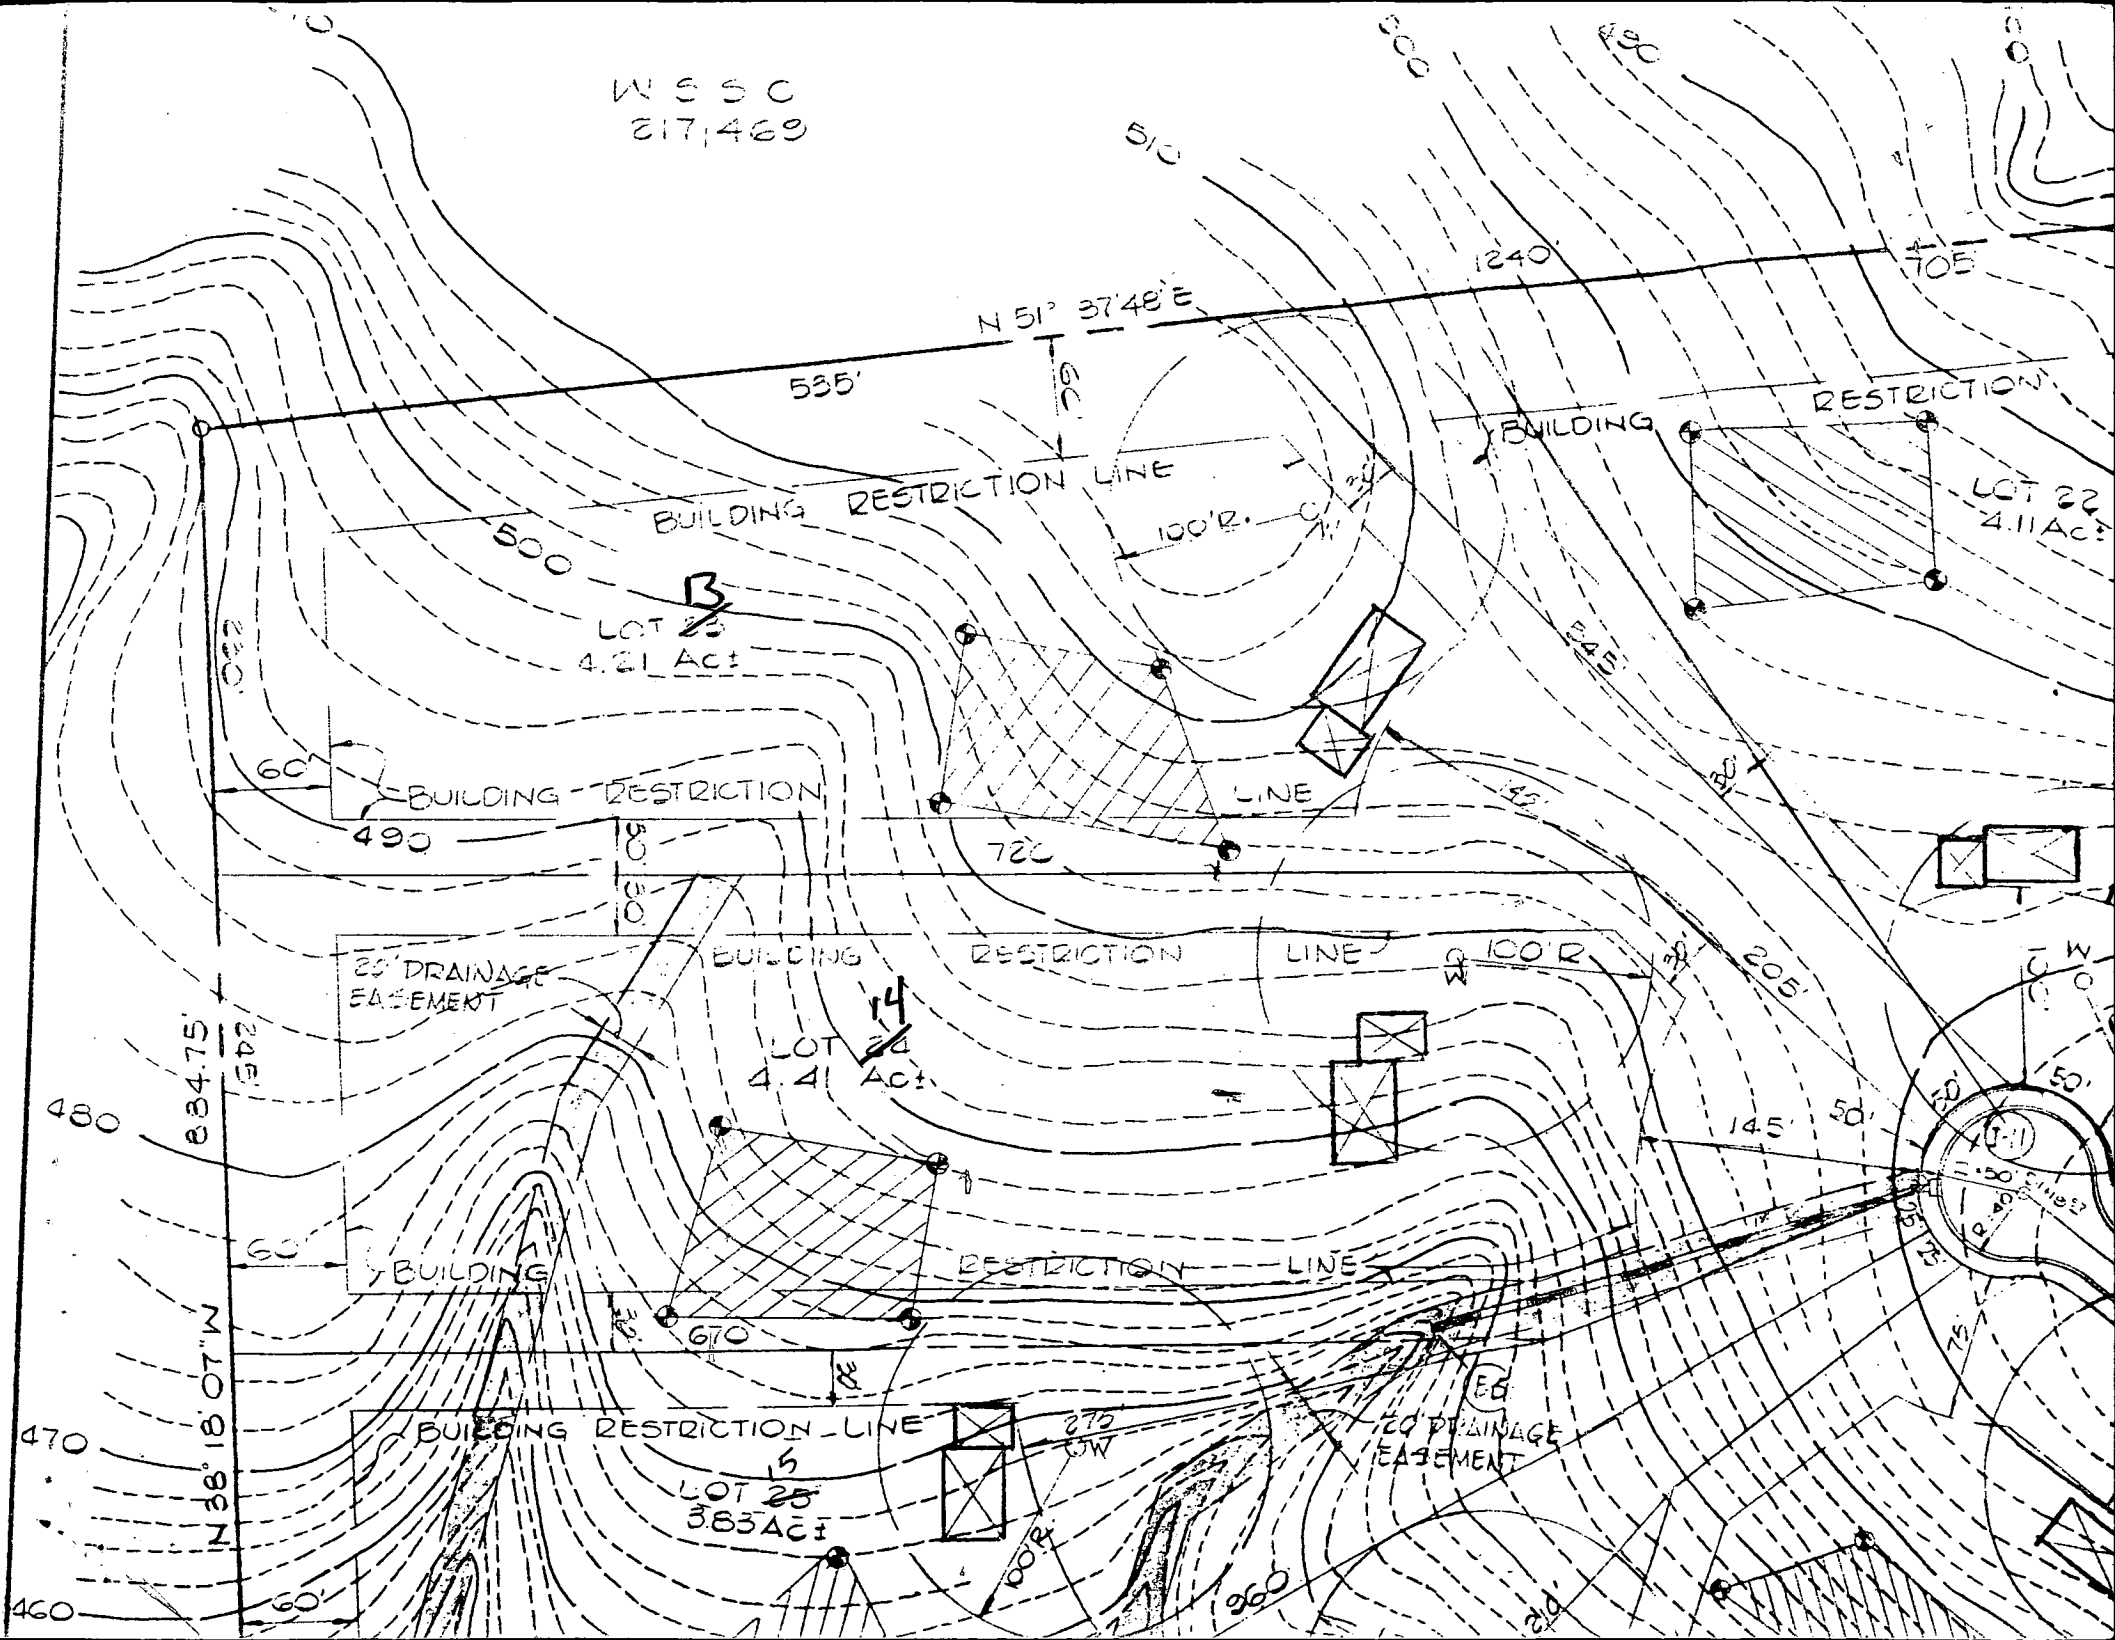 500
490
W S S C
217,469
510
1240'
705'
N 51° 37'48" E
535'
60'
BUILDING RESTRICTION
BUILDING RESTRICTION LINE
100'R.
LOT 22
4.11 Ac±
500
13
LOT 23
4.21 Ac±
230'
345'
60'
BUILDING RESTRICTION LINE
30'
145'
490
50'
720
50'
BUILDING RESTRICTION LINE
OW
100'R
30'
205'
20' DRAINAGE
EASEMENT
14
LOT 24
4.41 Ac±
884.75'
245'
480
50'
50'
50'
145'
60'
BUILDING RESTRICTION LINE
30'
670
30'
25'
75'
75'
N 38° 18' 07" W
470
BUILDING RESTRICTION LINE
275'
OW
E6
20' DRAINAGE
EASEMENT
15
LOT 25
3.83 Ac±
100'R
460
60'
960
210'